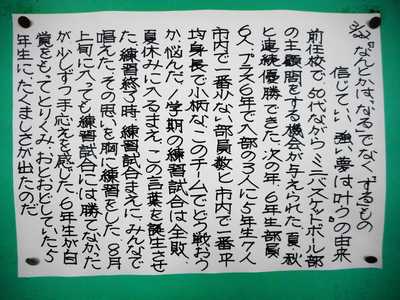 "なんとかは"なる"でなく"する"もの
信じてい、強い夢は叶うの由来
前任校で50代ながらミニバスケットボール部
の主顧問をする機会が与えられた。夏・秋
と連続優勝できた。次の年、6年生部員
6人、プラス6年で入部の3人に5年生7人
市内で一番少ない部員数と市内で一番平
均身長で小柄なこのチームでどう戦おう
か悩んだ。1学期の練習試合は全敗、
夏休みに入るまえ、この言葉を誕生させ
た。練習終了時、練習試合まえに、みんなで
唱えた。その思いを胸に練習をした。8月
上旬に入っても練習試合には勝てなかった
が少しずつ手応えを感じた。6年生が自
覚をもってとりくみ、おどおどしていた5
年生に、たくましさが出たのだ。